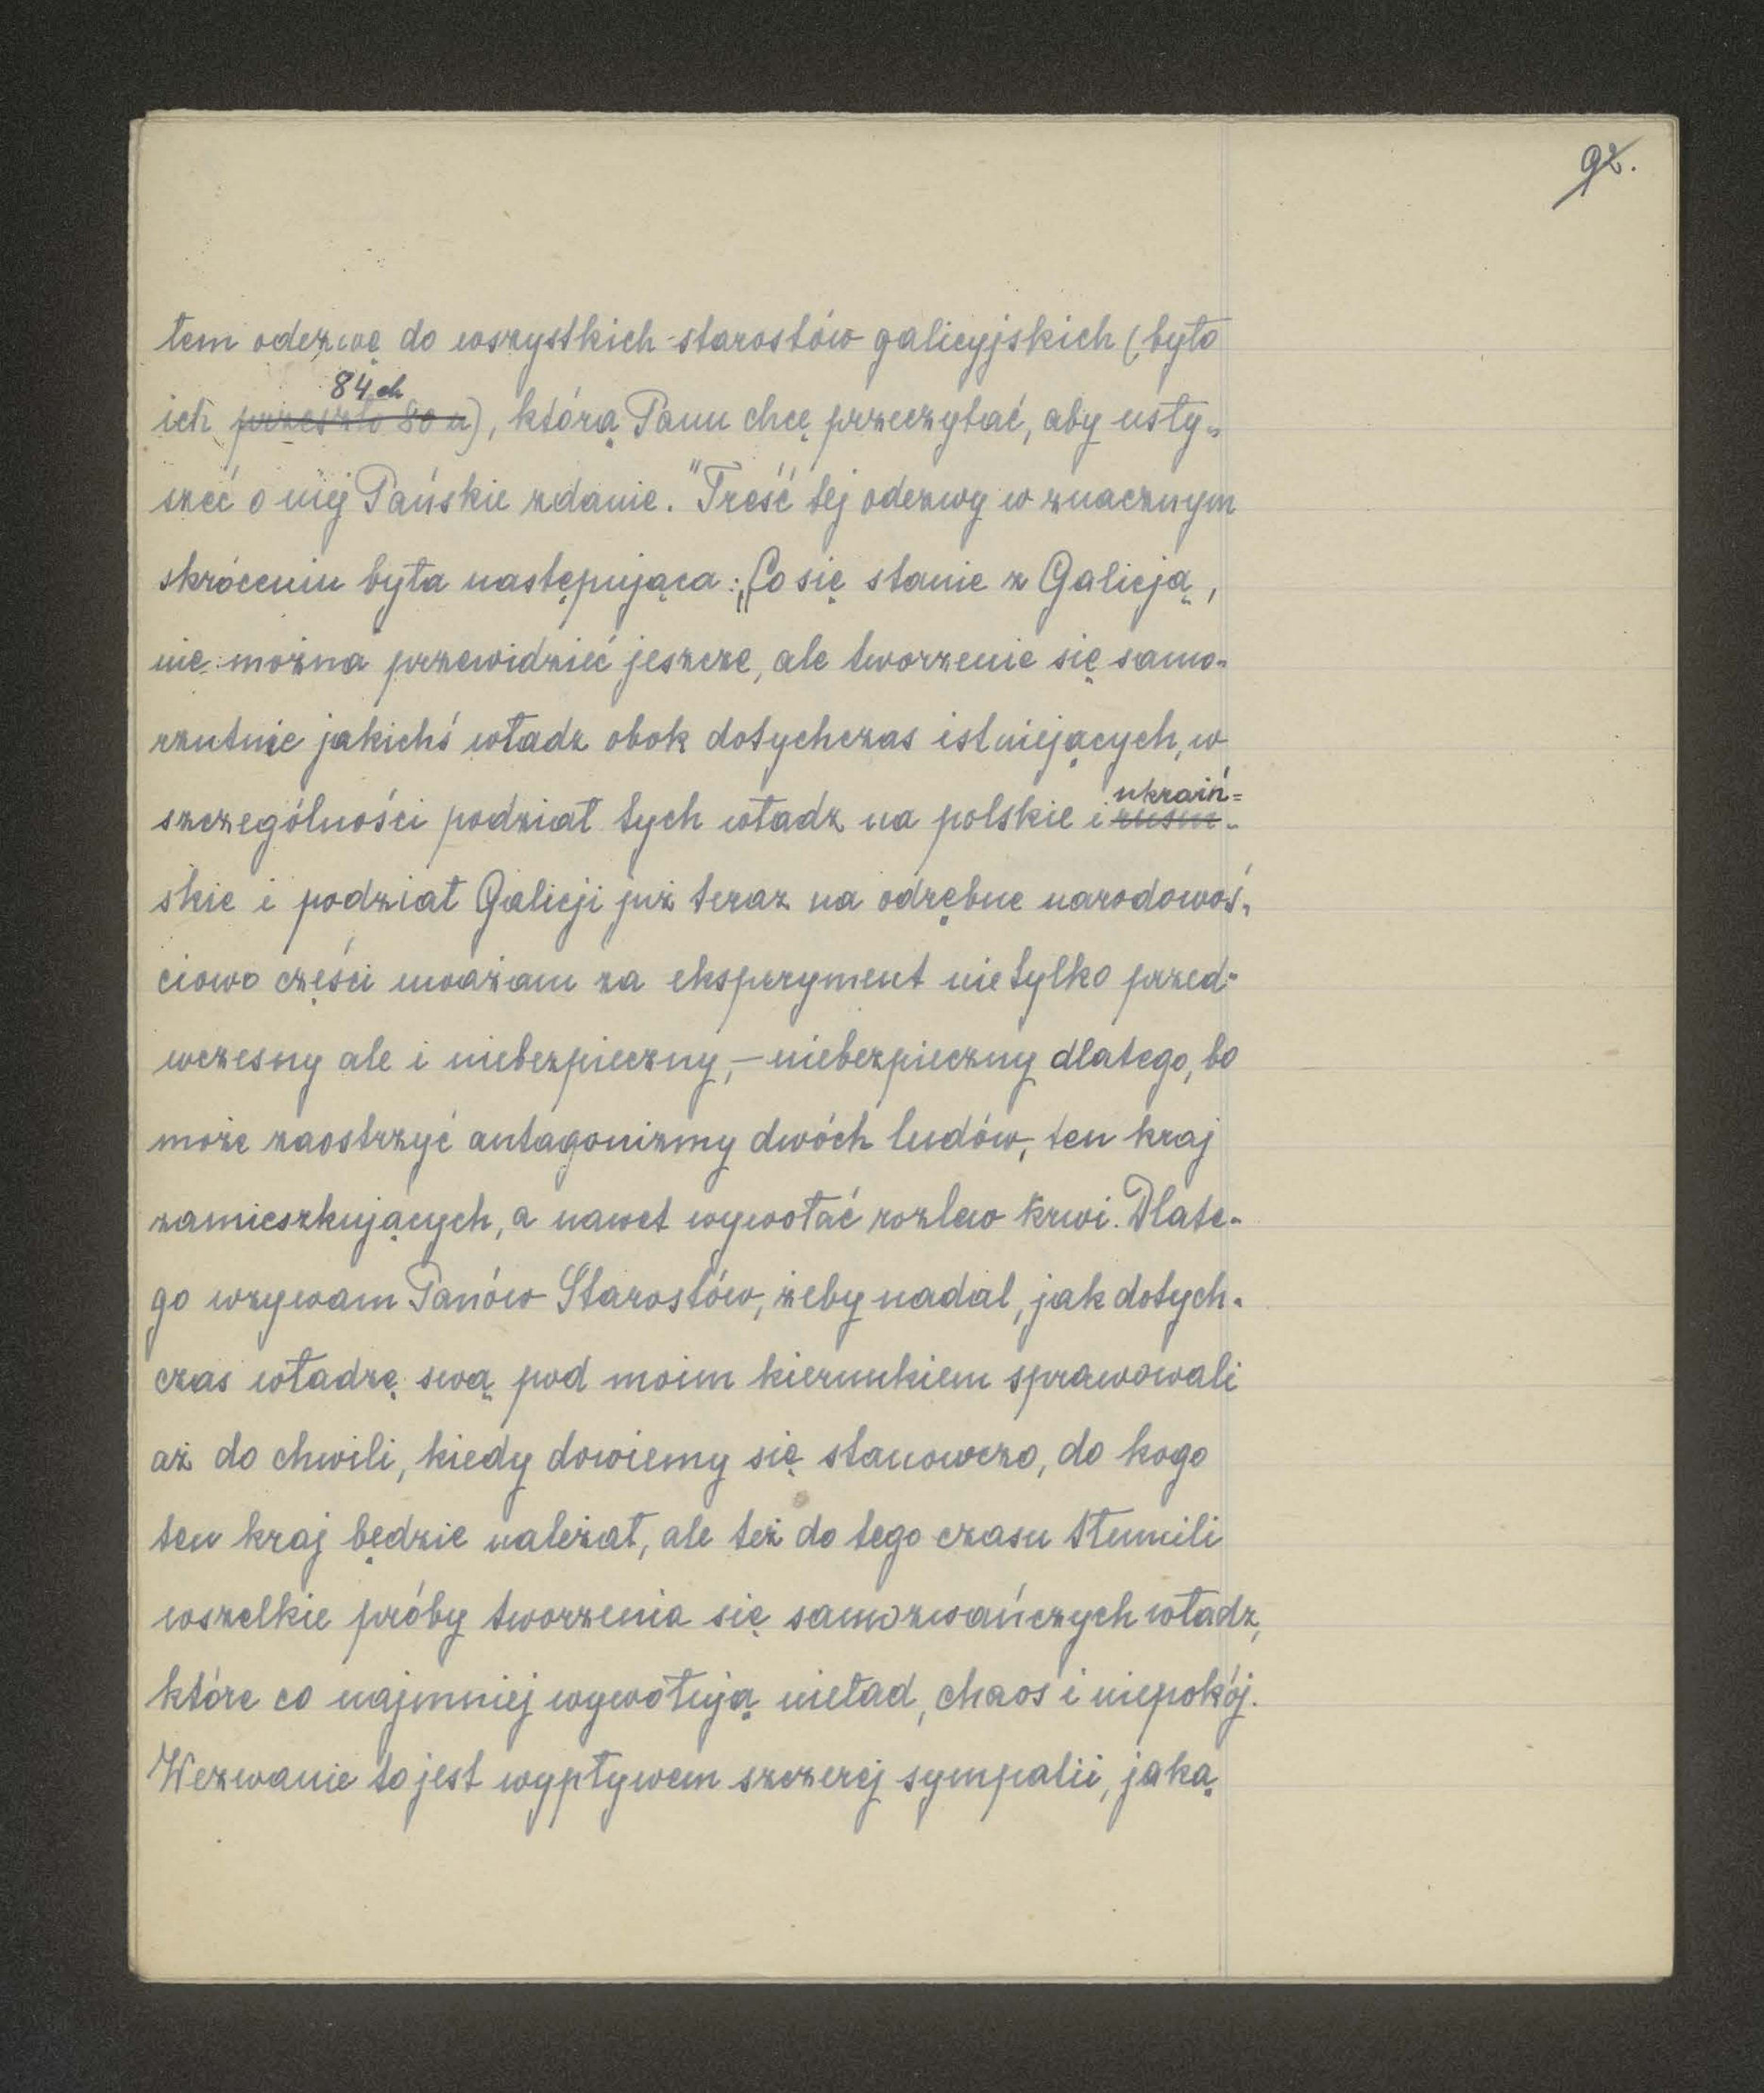 92.
tem odezwę do wszystkich starostów galicyjskich (było
84ch
ich przeszło 80u), którą Panu chcę przeczytać, aby usły-
szeć o niej Pańskie zdanie." Treść tej odezwy w znacznym
skróceniu była następująca: „Co się stanie z Galicją,
nie można przewidzieć jeszcze, ale tworzenie się samo-
rzutnie jakichś władz obok dotychczas istniejących, w
ukraiń=
szczególności podział tych władz na polskie i rusiń-
skie i podział Galicji już teraz na odrębne narodowoś-
ciowo części uważam za eksperyment nie tylko przed-
wczesny ale i niebezpieczny, – niebezpieczny dlatego, bo
może zaostrzyć antagonizmy dwóch ludów, ten kraj
zamieszkujących, a nawet wywołać rozlew krwi. Dlate-
go wzywam Panów Starostów, żeby nadal, jak dotych-
czas władzę swą pod moim kierunkiem sprawowali
aż do chwili, kiedy dowiemy się stanowczo, do kogo
ten kraj będzie należał, ale też do tego czasu tłumili
wszelkie próby tworzenia się samozwańczych władz,
które co najmniej wywołują nieład, chaos i niepokój.
Wezwanie to jest wypływem szczerej sympatii, jaką